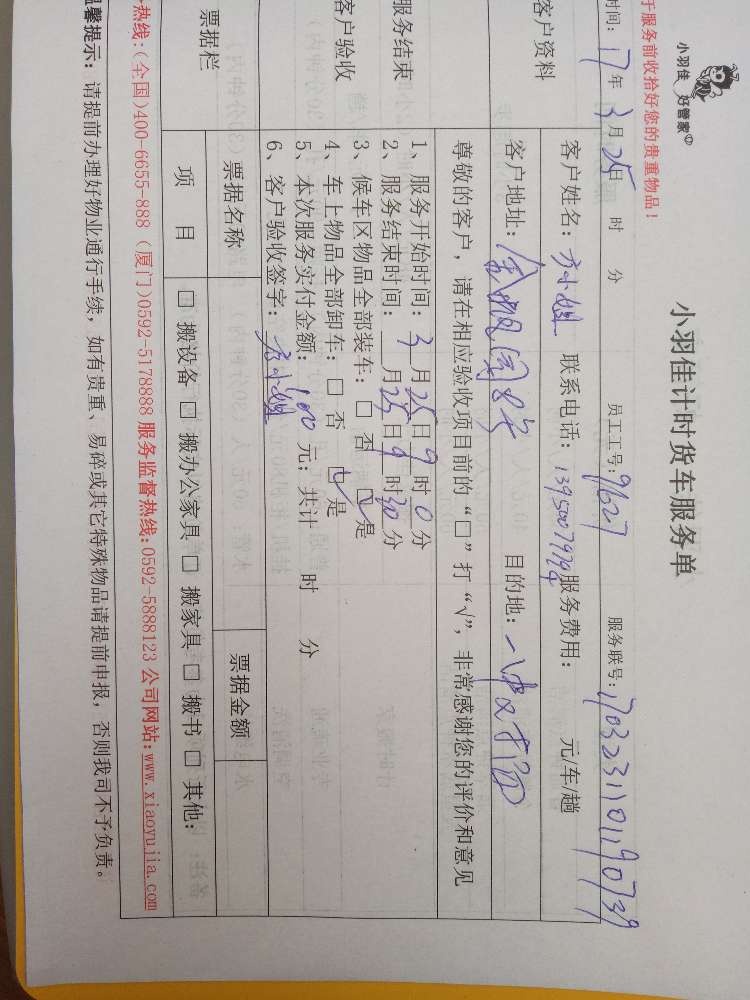 小羽佳 好管家
小羽佳计时货车服务单
于服务前收拾好您的贵重物品!
时间: 17年3月25日 时 分 员工工号: 91627 服务联号: 1703231101190739
客户资料
客户姓名: 方小姐 联系电话: 13950079794 服务费用: 元/车/趟
客户地址: 8号 目的地:
尊敬的客户, 请在相应验收项目前的“□”打“√”, 非常感谢您的评价和意见
服务结束
客户验收
1、服务开始时间: 3月25日9时0分
2、服务结束时间: 月25日9时30分
3、候车区物品全部装车: □ 否 □ 是
4、车上物品全部卸车: □ 否 □ 是
5、本次服务实付金额: 100元; 共计 时 分
6、客户验收签字: 方小姐
票据栏
票据名称 票据金额
项 目 □ 搬设备 □ 搬办公家具 □ 搬家具 □ 搬书 □ 其他:
热线:(全国)400-6655-888 (厦门)0592-5178888 服务监督热线:0592-5888123 公司网站:www.xiaoyujia.com
温馨提示: 请提前办理好物业通行手续, 如有贵重、易碎或其它特殊物品请提前申报, 否则我司不予负责。